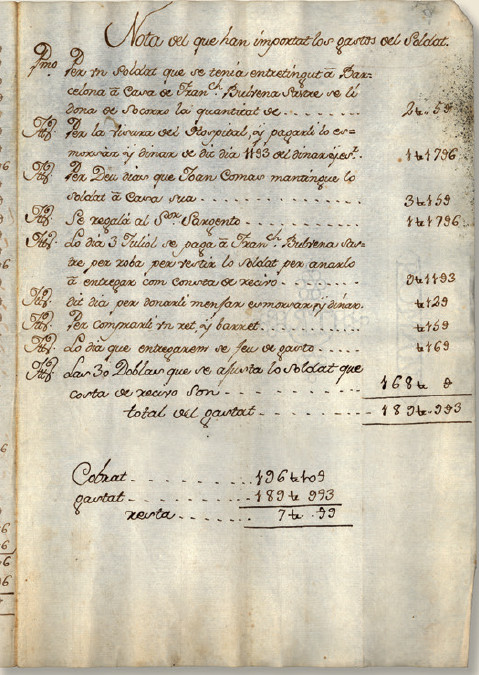 Nota del que han importat los gastos del Soldat.
Pmo. Per un Soldat que se tenia entretingut â Bar-
celona â Casa de Franch. Bulvena Sastre se li
dona de Socorro la quantitat de . . . . . . . 2 ₶ . 5 ß
Ittp. Per la del Hospital, y pagarli lo es-
morsar y dinar de dit dia 11 ß 3 del dinar y est. 1 ₶ 17 ß 6
Ittp. Per Deu dias que Joan Comas mantingue lo
soldat â Casa sua . . . . . . . . . . . 3 ₶ 15 ß
Ittp. Se regalá al Sor. Sargento . . . . . . . 1 ₶ 17 ß 6
Ittp. Lo dia 3 Juliol se paga â Franch. Bulvena Sas-
tre per roba per vestir lo soldat per anarlo
â entregar com consta de recivo . . . . . . ₶ 11 ß 3
Ittp. dit dia per donarli menjar esmorsar, y dinar. ₶ 12 ß
Ittp. Per comprarli un ret, y barret . . . . . . ₶ 15 ß
Ittp. Lo dia que entregarem se feu de gasto . . . . . ₶ 16 ß
Ittp. Las 30 Doblas que se ajusta lo Soldat que
costa de recivo son . . . . . . . . . . 168 ₶ ß
total del gastat . . . . . . . . . . 189 ₶ . 9 ß 3
Cobrat . . . . . . . . . 196 ₶ 10 ß
gastat . . . . . . . . . 189 ₶ 9 ß 3
resta . . . . . . 7 ₶ . ß 9